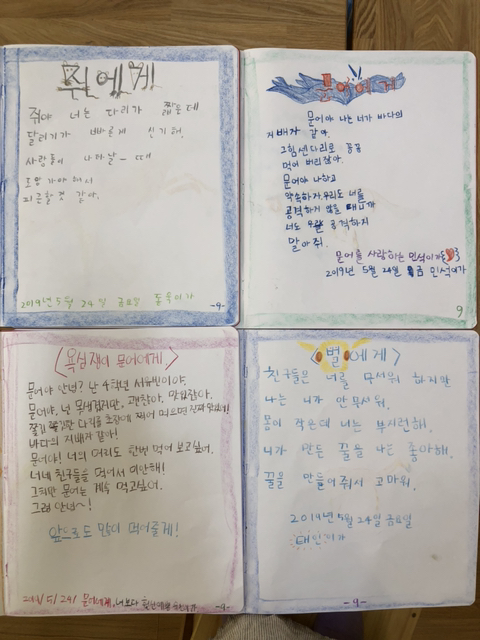 쥐에게
쥐야 너는 다리가 짧은데
달리기가 빠르게 신기해.
사람들이 나타날 때
도망가야 해서
피곤할 것 같아.
2019년 5월 24일 금요일
-9-
문어에게
문어야 나는 너가 바다의
지배자 같아.
그 힘센 다리로 꽁꽁
먹어 버리잖아.
문어야 나하고
약속하자 우리도 너를
공격하지 않을 테니까
너도 우릴 공격하지
말아줘.
문어를 사랑하는 민석이가
2019년 5월 24일 금 민석이가
9
<욕심쟁이 문어에게>
문어야 안녕? 난 4학년 서유빈이야.
문어야, 넌 못생겼지만, 괜찮아. 맛있잖아.
다리를 초장에 찍어 먹으면 진짜 맛있어!
바다의 지배자 같아!
문어야! 너의 머리도 한번 먹어 보고싶어.
너네 친구들을 먹어서 미안해!
그치만 문어는 계속 먹고싶어.
그럼 안녕~!
앞으로도 많이 먹어줄게!
5/24/ 문어에게, 너보다
-9-
<벌에게>
친구들은 너를 무서워 하지만
나는 니가 안 무서워.
몸이 작은데 너는 부지런해.
니가 만든 꿀을 나는 좋아해.
꿀을 만들어 줘서 고마워.
2019년 5월 24일 금요일
태인이가
-9-